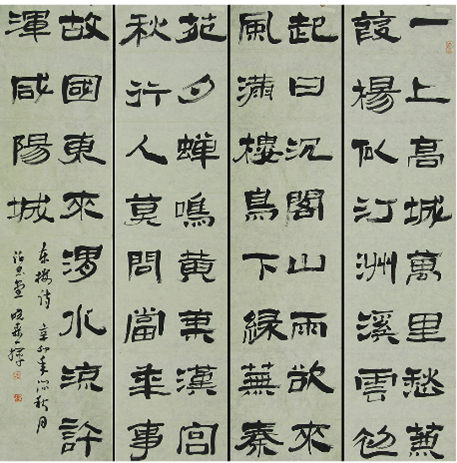 一上高城萬里愁蒹
葭楊似汀洲溪雲初
起日沉閣山雨欲來
風滿樓鳥下綠蕪秦
苑夕蟬鳴黃葉漢宮
秋行人莫問當年事
故國東來渭水流許
渾咸陽城
東樓詩 辛卯年深秋月